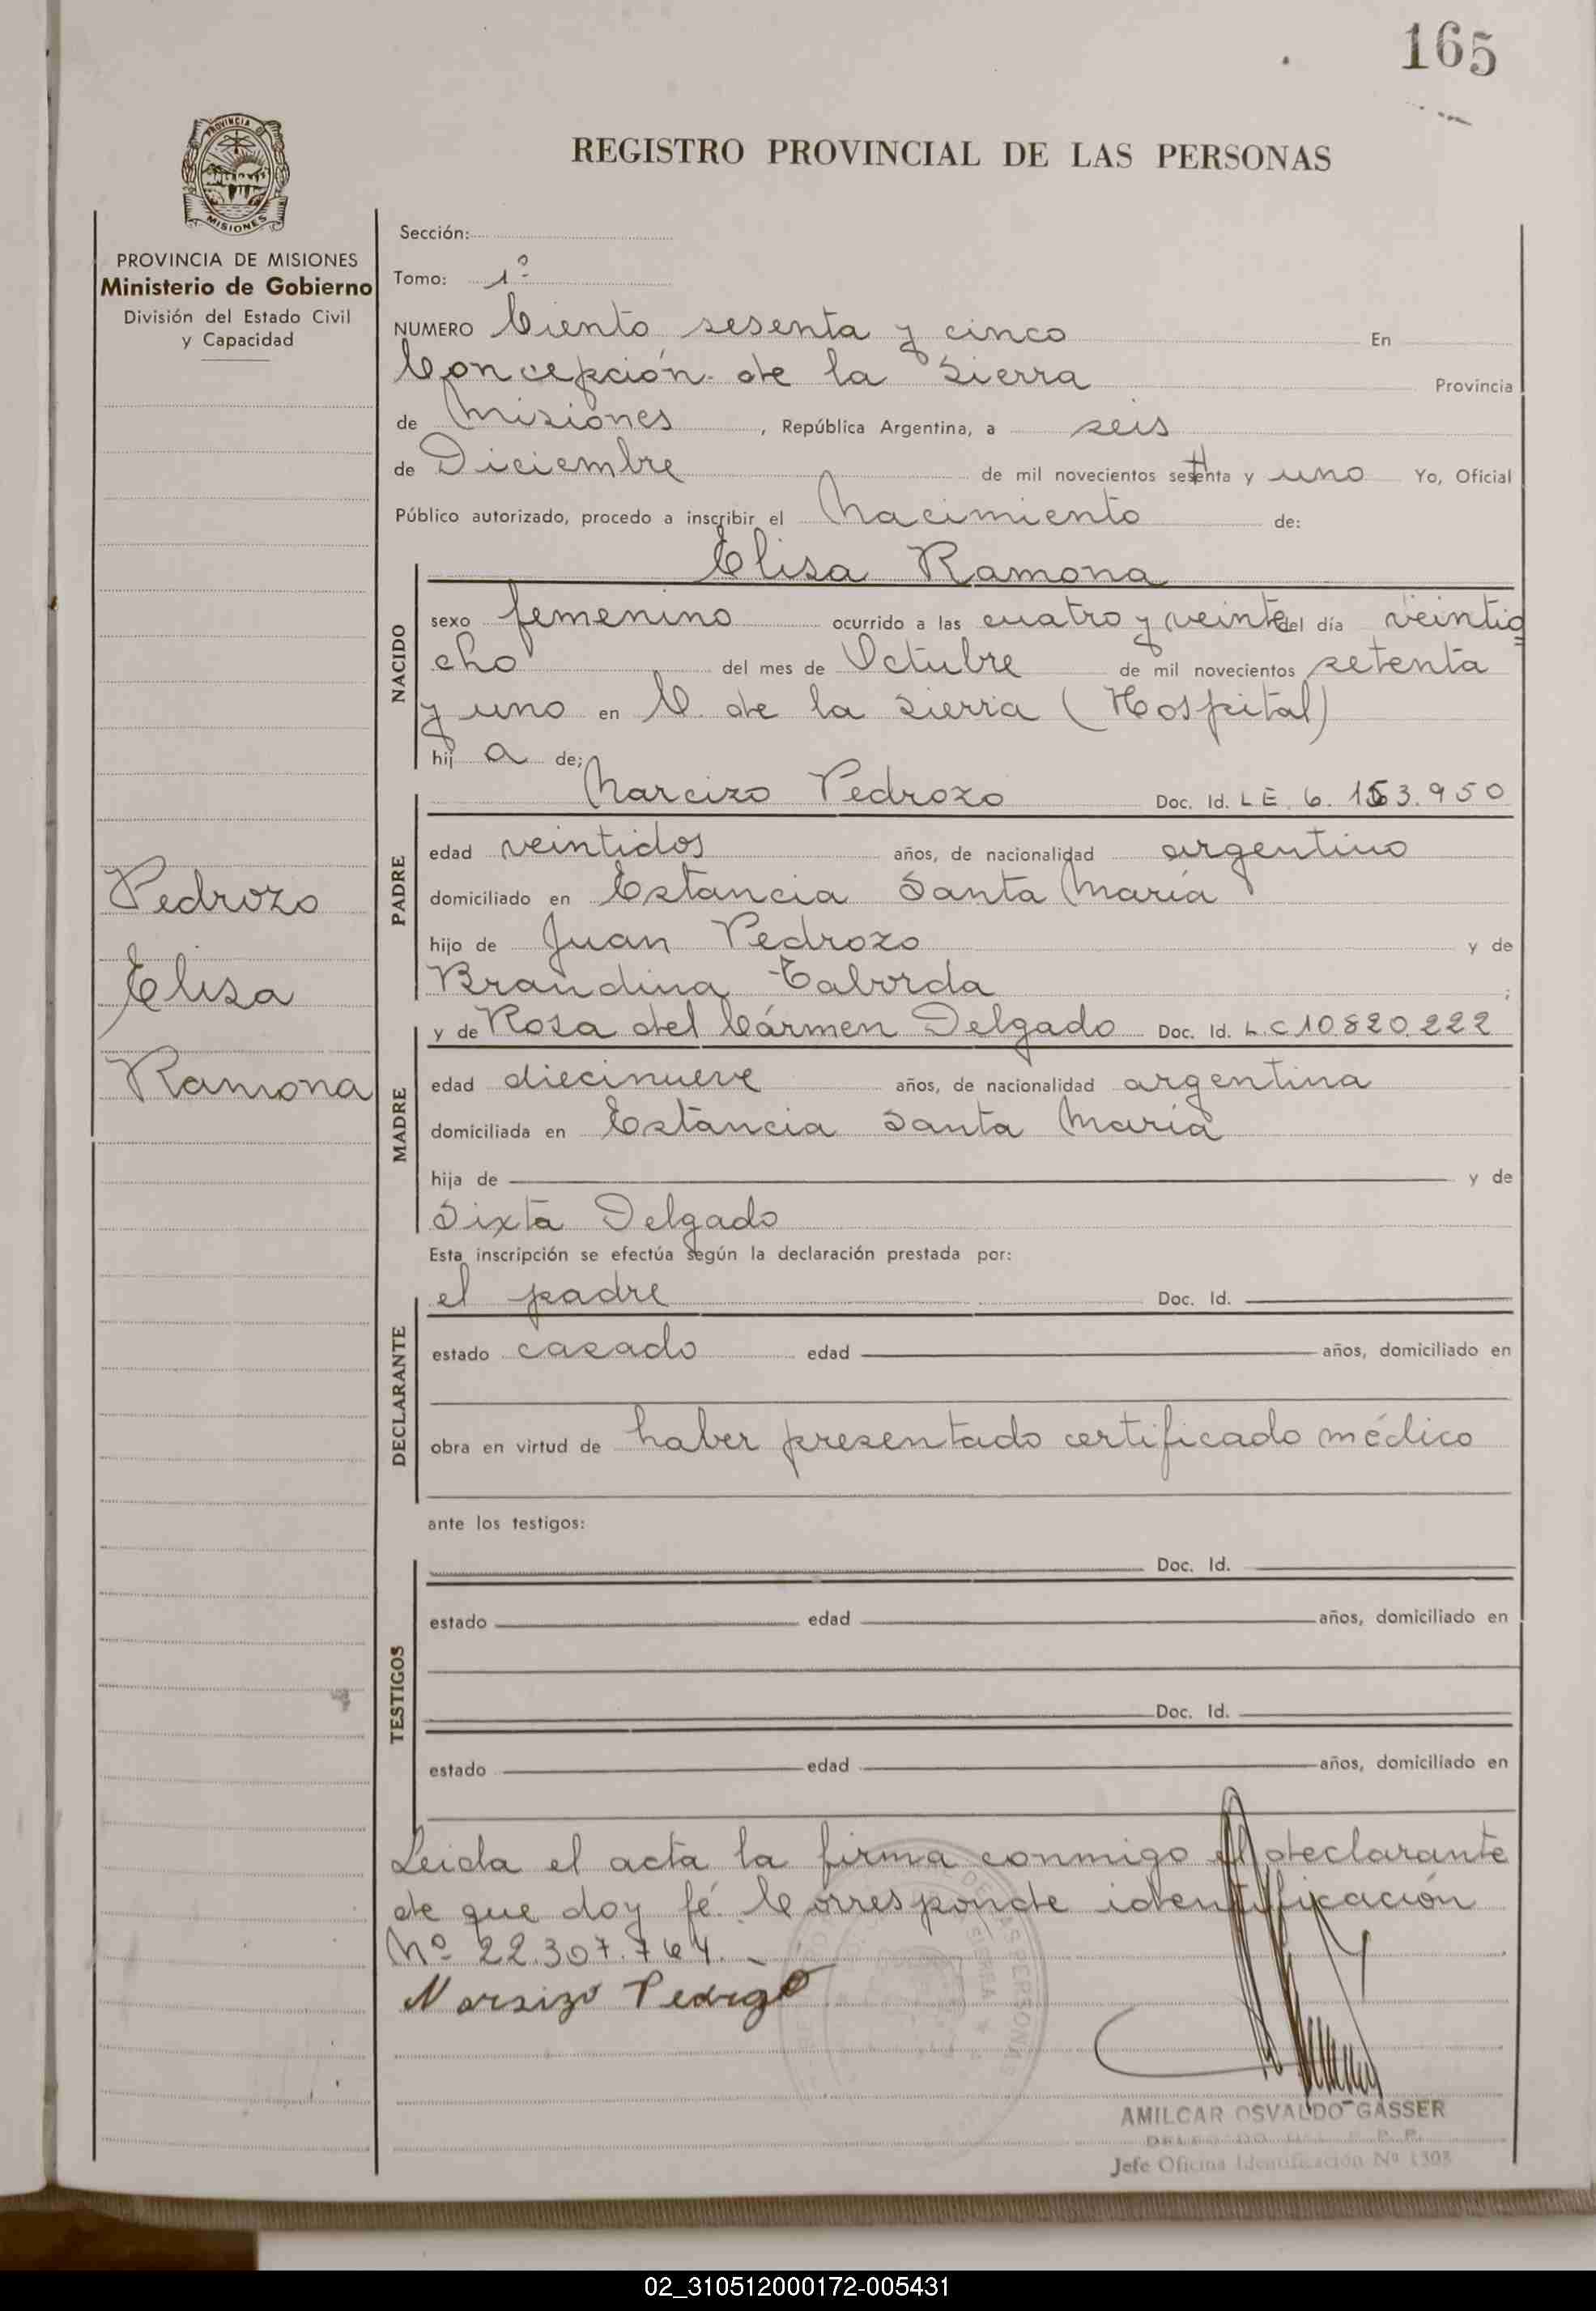 165
PROVINCIA DE
MISIONES
REGISTRO PROVINCIAL DE LAS PERSONAS
PROVINCIA DE MISIONES
Ministerio de Gobierno
División del Estado Civil
y Capacidad
Pedrozo
Elisa
Ramona
Sección:
Tomo: 1º
NUMERO Ciento sesenta y cinco En
Concepción de la Sierra Provincia
de Misiones, República Argentina, a seis
de Diciembre de mil novecientos setenta y uno Yo, Oficial
Público autorizado, procedo a inscribir el Nacimiento de:
Elisa Ramona
NACIDO
sexo femenino ocurrido a las cuatro y veinte del día veintio
cho del mes de Octubre de mil novecientos setenta
y uno en C. de la Sierra (Hospital)
hija de;
PADRE
Narcizo Pedrozo Doc. Id. L E. 6. 153.950
edad veintidos años, de nacionalidad argentino
domiciliado en Estancia Santa María
hijo de Juan Pedrozo y de
Brandina Taborda;
MADRE
y de Rosa del Cármen Delgado Doc. Id. L.C 10.820.222
edad diecinueve años, de nacionalidad argentina
domiciliada en Estancia Santa María
hija de y de
Sixta Delgado
Esta inscripción se efectúa según la declaración prestada por:
DECLARANTE
el padre Doc. Id.
estado casado edad años, domiciliado en
obra en virtud de haber presentado certificado médico
ante los testigos:
TESTIGOS
Doc. Id.
estado edad años, domiciliado en
Doc. Id.
estado edad años, domiciliado en
Leida el acta la firma conmigo el declarante
de que doy fé. Corresponde identificación
Nº 22.307.764.
Narsizo Pedrozo
AMILCAR OSVALDO GASSER
Jefe Oficina Identificación Nº 1303
02_310512000172-005431